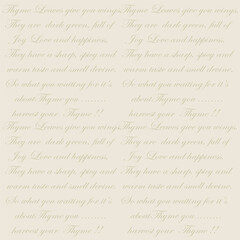 Thyme Leaves give you wings,
They are dark green, full of
Joy Love and happiness.
They have a spicy and
warm taste and smell devine.
So what you waiting for it's
about Thyme you .........
harvest your Thyme !!
Thyme Leaves give you wings,
They are dark green, full of
Joy Love and happiness.
They have a spicy and
warm taste and smell devine.
So what you waiting for it's
about Thyme you .........
harvest your Thyme !!
Thyme Leaves give you wings,
They are dark green, full of
Joy Love and happiness.
They have a spicy and
warm taste and smell devine.
So what you waiting for it's
about Thyme you .........
harvest your Thyme !!
Thyme Leaves give you wings,
They are dark green, full of
Joy Love and happiness.
They have a spicy and
warm taste and smell devine.
So what you waiting for it's
about Thyme you .........
harvest your Thyme !!